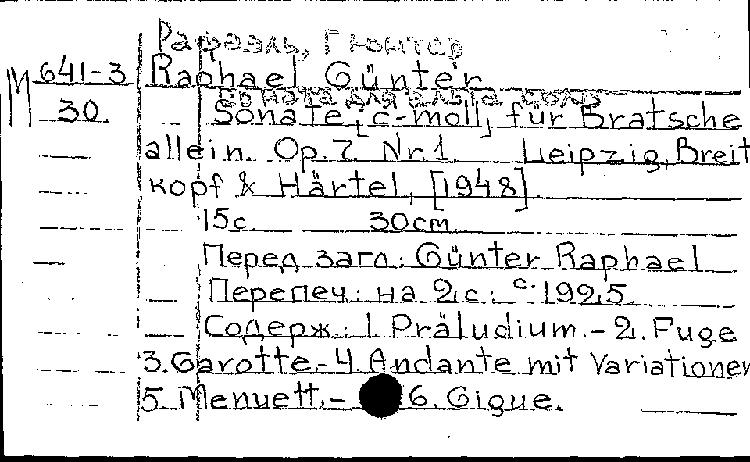 Рафаэль, Гюнтер
М 641-3 Raphael Günter
соната для альта соло
30. Sonate [c-moll] für Bratsche
allein. Op. 7. Nr. 1 Leipzig, Breit
kopf & Härtel, [1948]
15с. 30cm
Перед загл.: Günter Raphael
Перепеч: на 2, с: с. 192,5.
Содерж.: 1. Präludium. - 2. Fuge
3. Gavotte. - 4. Andante mit Variationen
5. Menuett. - 6. Gigue.